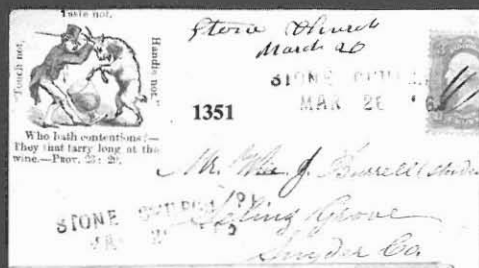 Taste not,
"Touch not,
Handle not."
Who hath contentions?—
They that tarry long at the
wine.—Prov. 23: 29.
Stone Church
March 26
STONE CHURCH
MAR 26 '6
1351
Mr. Wm J. Burrell
STONE CHURCH PA
Seling Grove
Snyder Co.